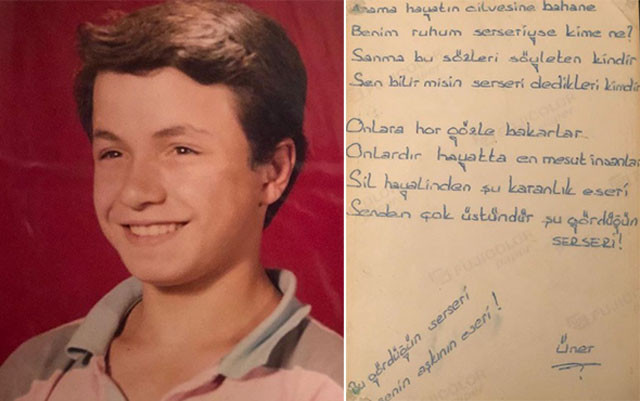 Arama hayatın cilvesine bahane
Benim ruhum serseriyse kime ne?
Sanma bu sözleri söyleten kindir
Sen bilir misin serseri dedikleri kimdir
Onlara hor gözle bakarlar
Onlardır hayatta en mesut insanlar
Sil hayalinden şu karanlık eseri
Senden çok üstündür şu gördüğün
SERSERİ!
Bu gördüğün serseri
senin aşkının eseri!
Üner
FUJICOLOR
FUJICOLOR